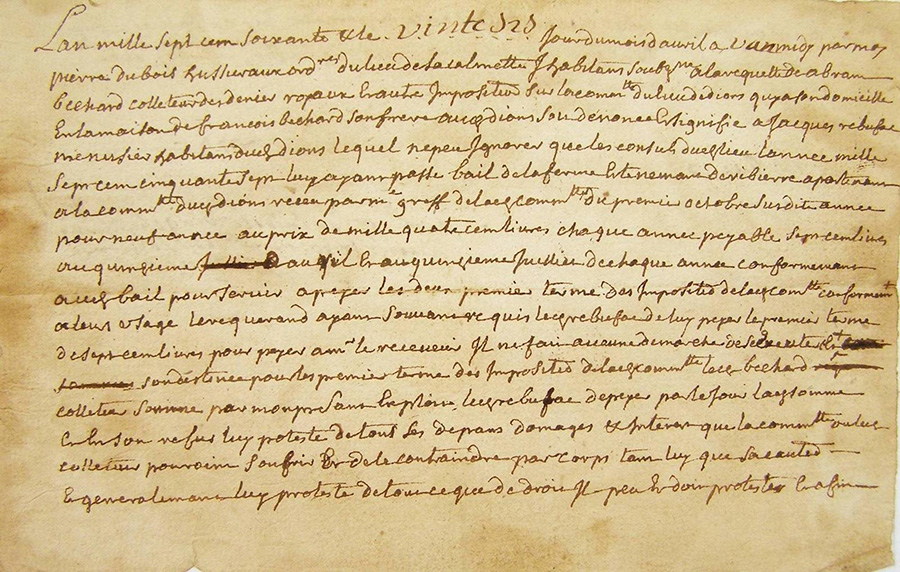 Lan mille sept cem soixante & le vinte six Jour du mois davril avan midy par moy
pierre dubois hussier aux ordres du lieu de la calmette Jhabitan soubzne a la requette de abram
bechard colleteur des denier royaux Er autre Impositeu sur la commte du lieu de dions quy a son domicille
En la maison de francois bechard son frere aud dions soit denonce Er signifie a Jacques rebufae
menusier habitan dud dions lequel ne peu Ignorer que les consuls dud lieu lannee mille
sept cem cinquante sept luy ayant passe bail de la ferme Er tenemant de ribierre apartenant
a la commte dud dions receu par me greff de lad commte du premier octobre susdite annee
pour neuf annee au prix de mille quatre cem livres chaque annee peyable sept cem livres
au quinzieme avril Er au quinzieme Juillier de chaque annee conformemant
aud bail pour servir a peyer les deux premier terme des Impositio de lad commte conformemt
a leur usage le requerand ayant souvant requis led rebufae de luy peyer le premier terme
de sept cem livres pour peyer a mr le receveur Il ne fair aucune demarche
son destinee pour les premier terme des Impositio de lad commte led bechard
colleteur somme par mon presant Exploix led rebufae de peyer par le Jour lad somme
Er En son refus luy proteste de tous ses depans domages & Interer que la commte ou luy
colleteur pouroint soufrir Er de le contraindre par corps tam luy que sa cauted
Er generalemant luy proteste de tout ce que de droit Il peu Er doit protester Er afin